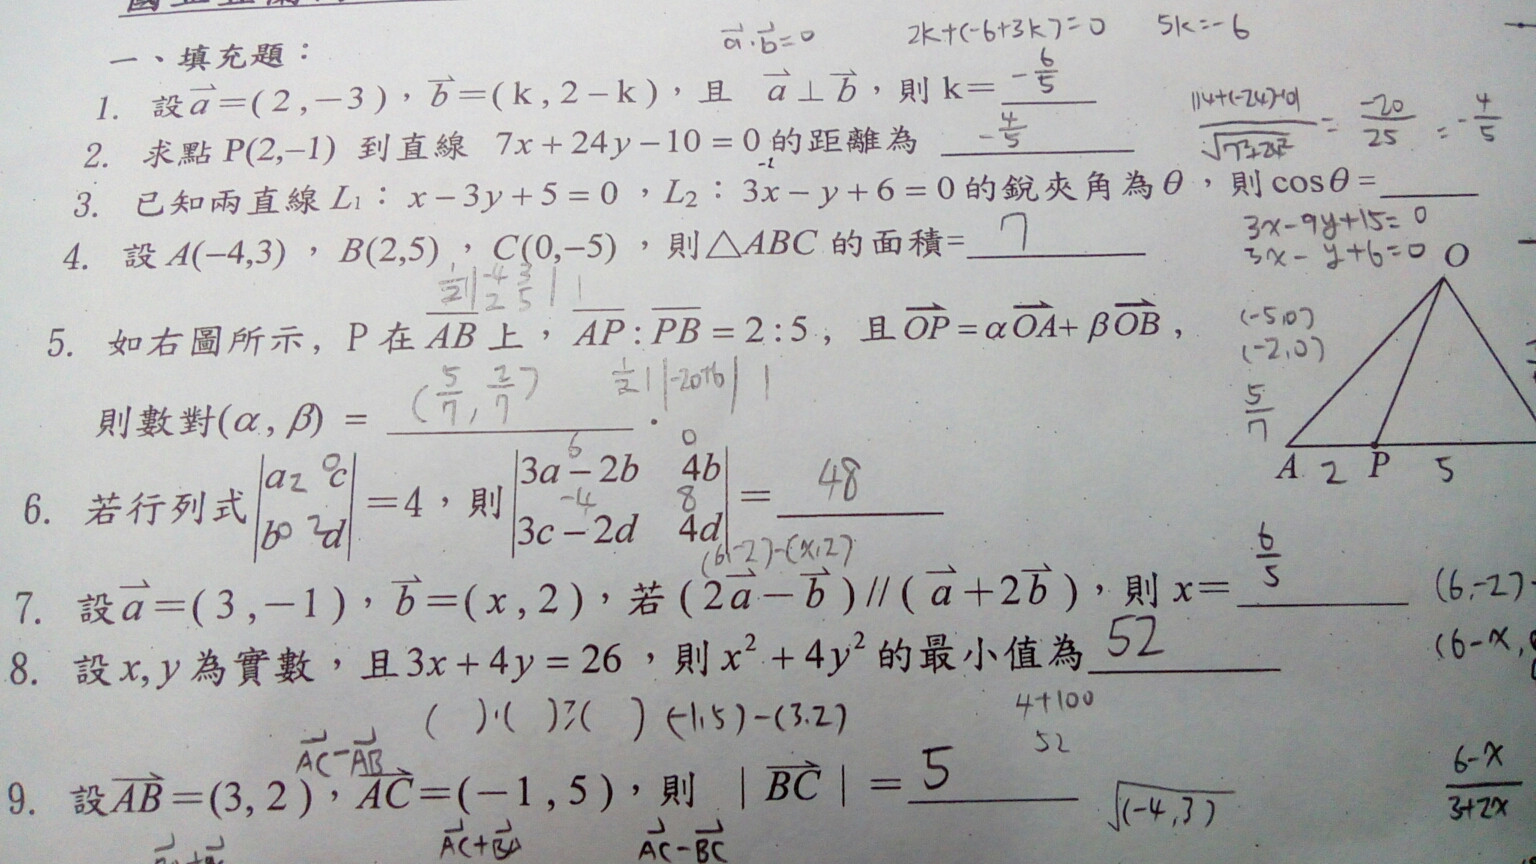 一、填充題：
a·b=0 2k+(-6+3k)=0 5k=-6
1. 設a=(2,-3)，b=(k,2-k)，且 a⊥b，則k= -6/5
2. 求點P(2,-1) 到直線 7x+24y-10=0的距離為 -4/5
|14+(-24)-10| = -20/25 = -4/5
3. 已知兩直線L₁：x-3y+5=0，L₂：3x-y+6=0的銳夾角為θ，則cosθ=
3x-9y+15=0
3x-y+6=0
4. 設A(-4,3)，B(2,5)，C(0,-5)，則△ABC的面積= 7
1/2 |-4 3
2 5|
5. 如右圖所示，P在AB上，AP:PB=2:5，且OP=αOA+βOB，
則數對(α,β) = (5/7, 2/7).
1/2 | |-20+6| |
(-5,0)
(-2,0)
5/7
O
A 2 P 5
6. 若行列式|a c; b d|=4，則|3a-2b 4b; 3c-2d 4d|= 48
2 0
0 2
6 0
-4 8
(6,-2)-(x,2)
7. 設a=(3,-1)，b=(x,2)，若(2a-b)//(a+2b)，則x= 6/5
(6,-2)-
(6-x,
8. 設x,y為實數，且3x+4y=26，則x²+4y²的最小值為 52
( )·( )≥( ) (-1,5)-(3,2)
4+100
52
AC-AB
9. 設AB=(3,2)，AC=(-1,5)，則 |BC| = 5
√(-4,3)
6-x/3+2x
AC+BA AC-BC